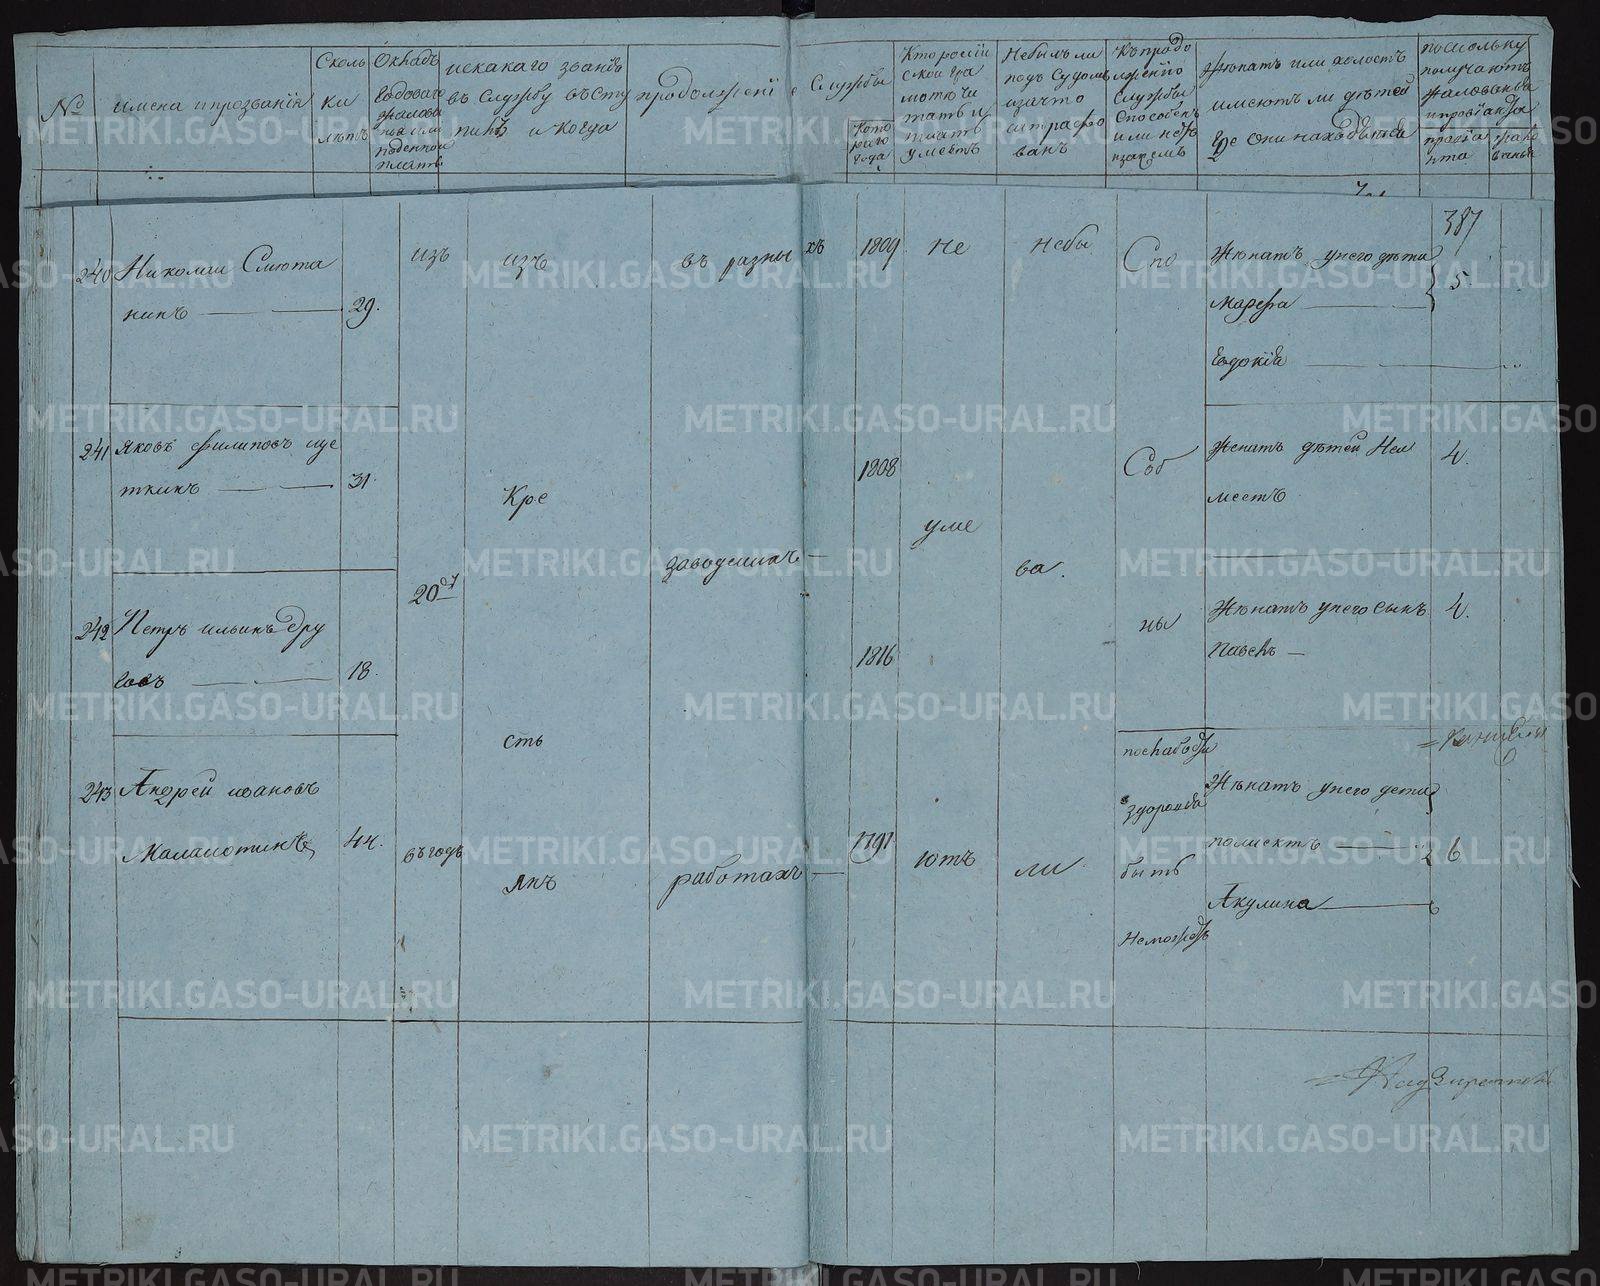 №
имена и прозвании
Сколь
ки
летъ
Окладъ
годоваго
жалова
нья или
поденной
платы
ис какаго звания
въ Службу въсту
пилъ и когда
продолжении Службы
Кото
раго
года
Кто росий
ской гра
моте чи
тать и
писать
умеетъ
Небылъ ли
подъ Судомъ
и за что
штрафо
ванъ
Къ продо
лжению
Службы
Способенъ
или нетъ
Женатъ или холостъ
имеютъ ли детей
где они находятся
поскольку
получаютъ
жалованья
и провианта
провиа
нта
387
240 Николай Слюта
нинъ 29.
изъ
изъ
въ разны хъ
1809
не
небы
Спо
Женатъ у него дети
Марфа
Евдокия
5
241 Яковъ Филиповъ ще
ткинъ 31.
1808
Соб
Женатъ детей Неи
меетъ
4.
Кре
уме
20 ру
заводскихъ
ва.
242 Петръ ильинъ дру
18.
1816
ны
Женатъ у него сынъ
Павелъ
4.
сть
243 Андрей ивановъ
44.
въ годъ
янъ
работахъ
1791
ютъ
ли
по слабости
здоровья
быть
Неможетъ
Женатъ у него дети
Акулина
6
METRIKI.GASO-URAL.RU